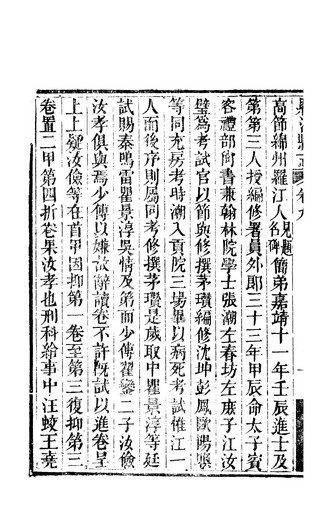 卷九
高節綿州羅江人見題名碑簡弟嘉靖十一年壬辰進士及
第第三人授編修署員外郎三十三年甲辰命太子賓
客禮部尚書兼翰林院學士張潮左春坊左庶子江汝
璧爲考試官以節與修撰茅瓚編修沈坤彭鳳歐陽
等同充房考時潮入貢院三場畢以病死考試惟江一
人而後序則屬同考修撰茅瓚是歲取中瞿景淳等廷
試賜秦鳴雷瞿景淳吳情及第而少傅翟鑾二子汝儉
汝孝俱與焉少傅以嫌故辭讀卷不許旣試以進卷呈
上上疑汝儉等在首甲因抑第一卷至第三復抑第三
卷置二甲第四折卷果汝孝也刑科給事中汪蛟王堯